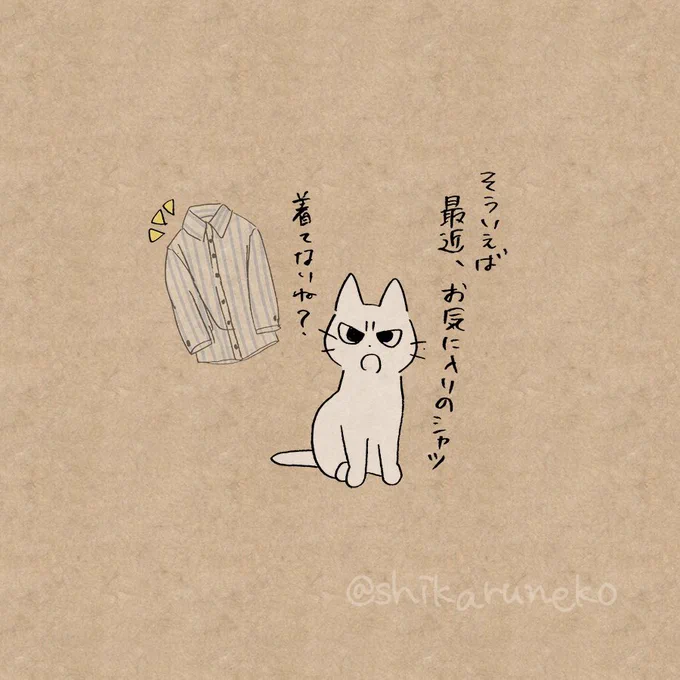 そういえば
最近、お気に入りのシャツ
着てないね？
@shikaruneko